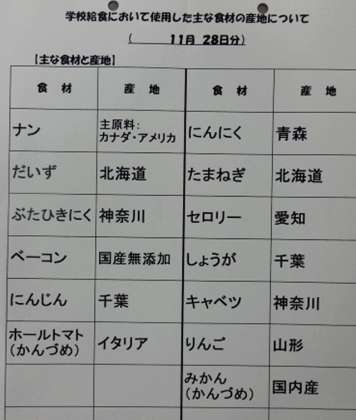 学校給食において使用した主な食材の産地について
( 11月 28日分)
【主な食材と産地】
食 材 産 地 食 材 産 地
ナン 主原料:カナダ・アメリカ にんにく 青森
だいず 北海道 たまねぎ 北海道
ぶたひきにく 神奈川 セロリー 愛知
ベーコン 国産無添加 しょうが 千葉
にんじん 千葉 キャベツ 神奈川
ホールトマト(かんづめ) イタリア りんご 山形
みかん(かんづめ) 国内産